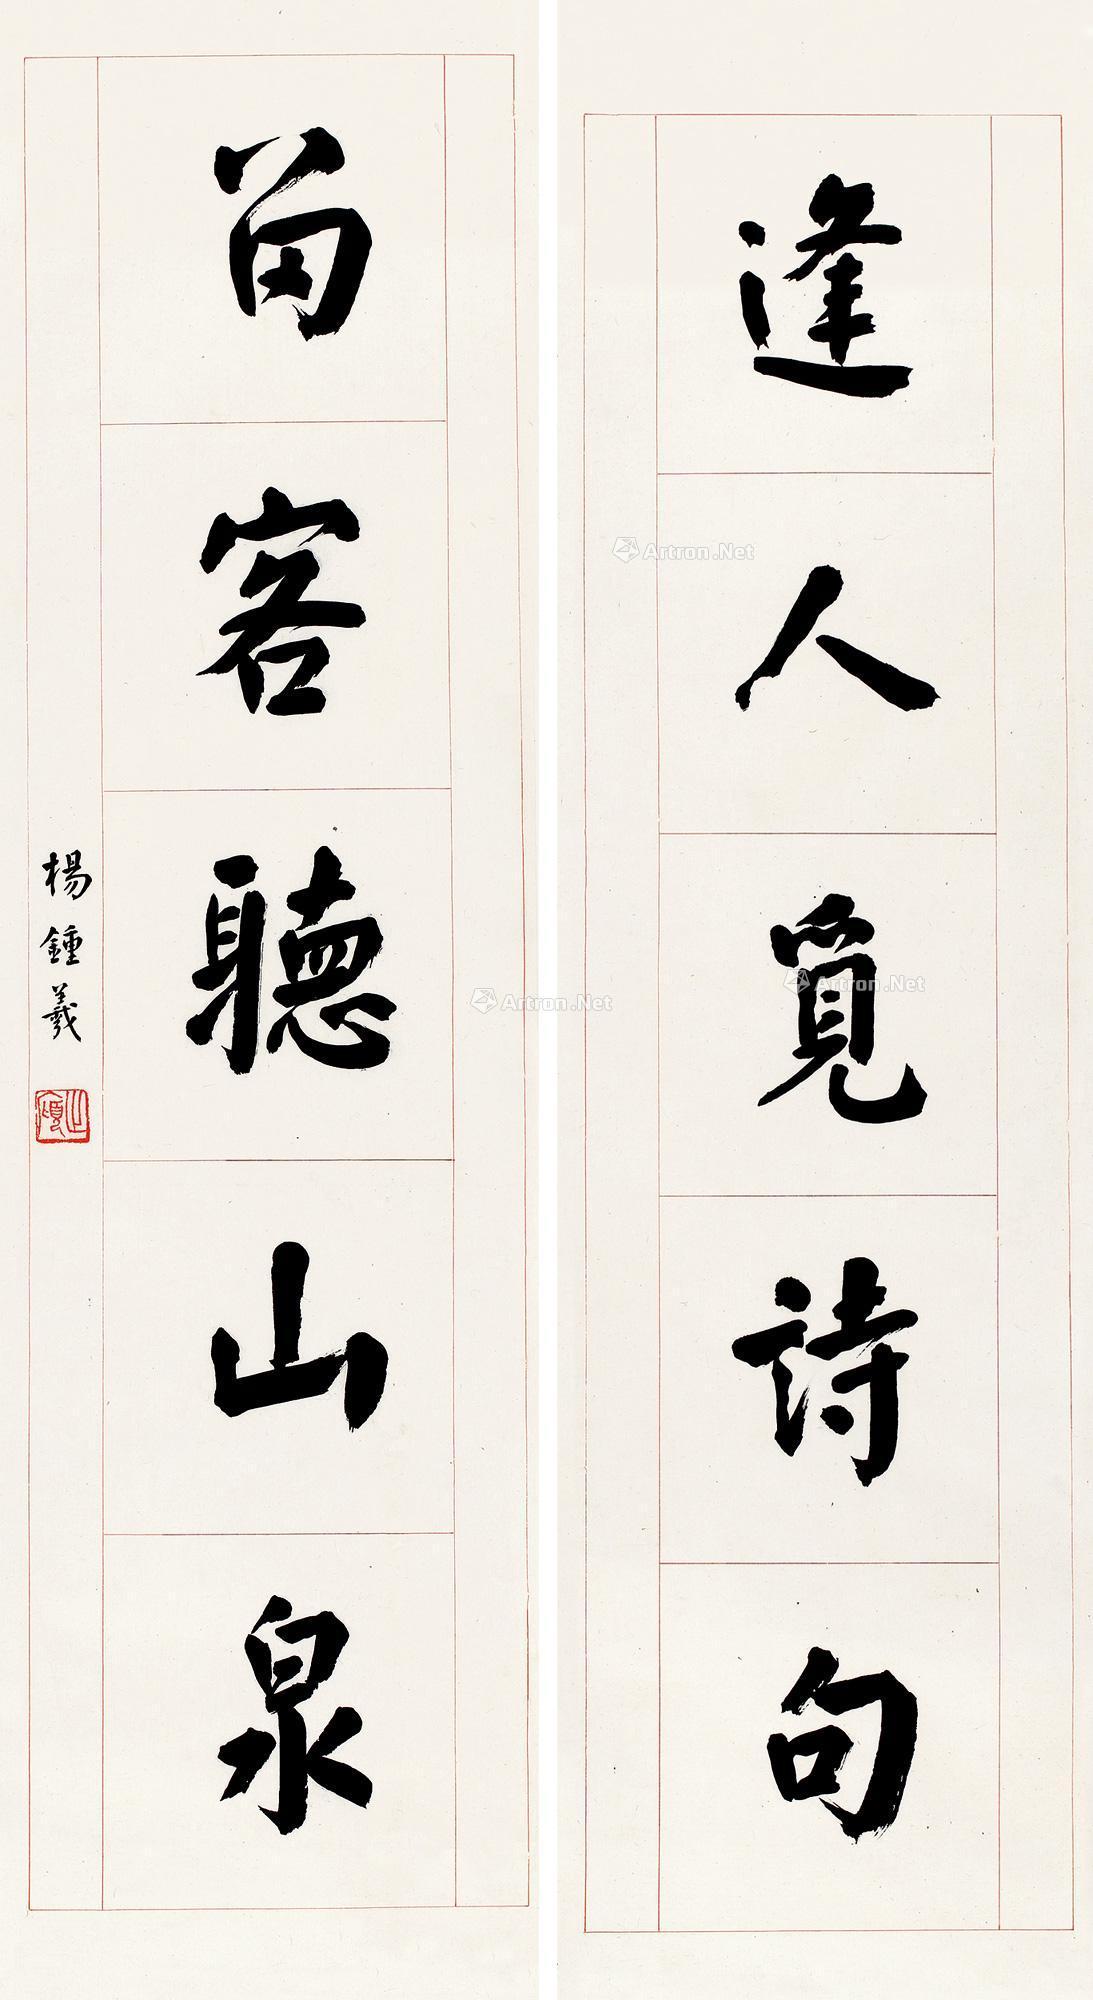 逢人覓詩句
留客聽山泉
楊鍾羲
Artron.Net
Artron.Net
Artron.Net